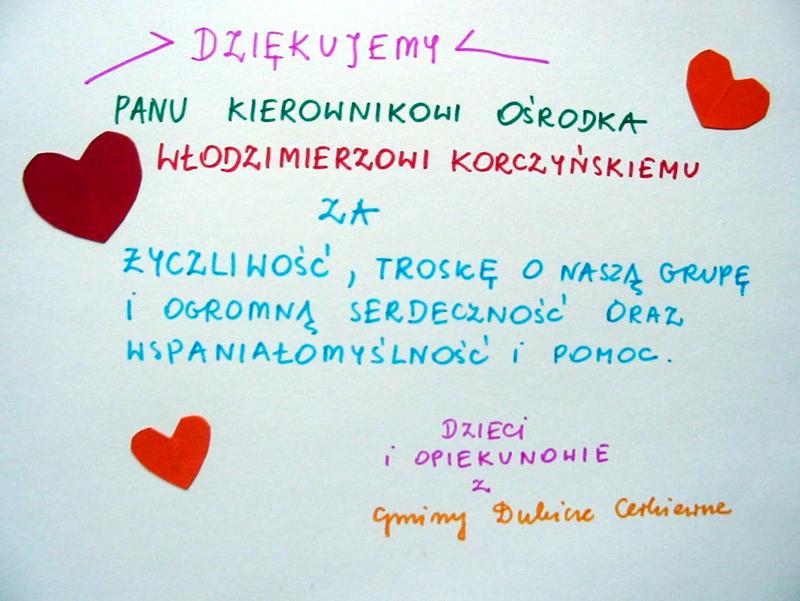 DZIĘKUJEMY
PANU KIEROWNIKOWI OŚRODKA
WŁODZIMIERZOWI KORCZYŃSKIEMU
ZA
ŻYCZLIWOŚĆ, TROSKĘ O NASZĄ GRUPĘ
I OGROMNĄ SERDECZNOŚĆ ORAZ
WSPANIAŁOMYŚLNOŚĆ i POMOC.
DZIECI
i OPIEKUNOWIE
z
Gminy Dubicze Cerkiewne